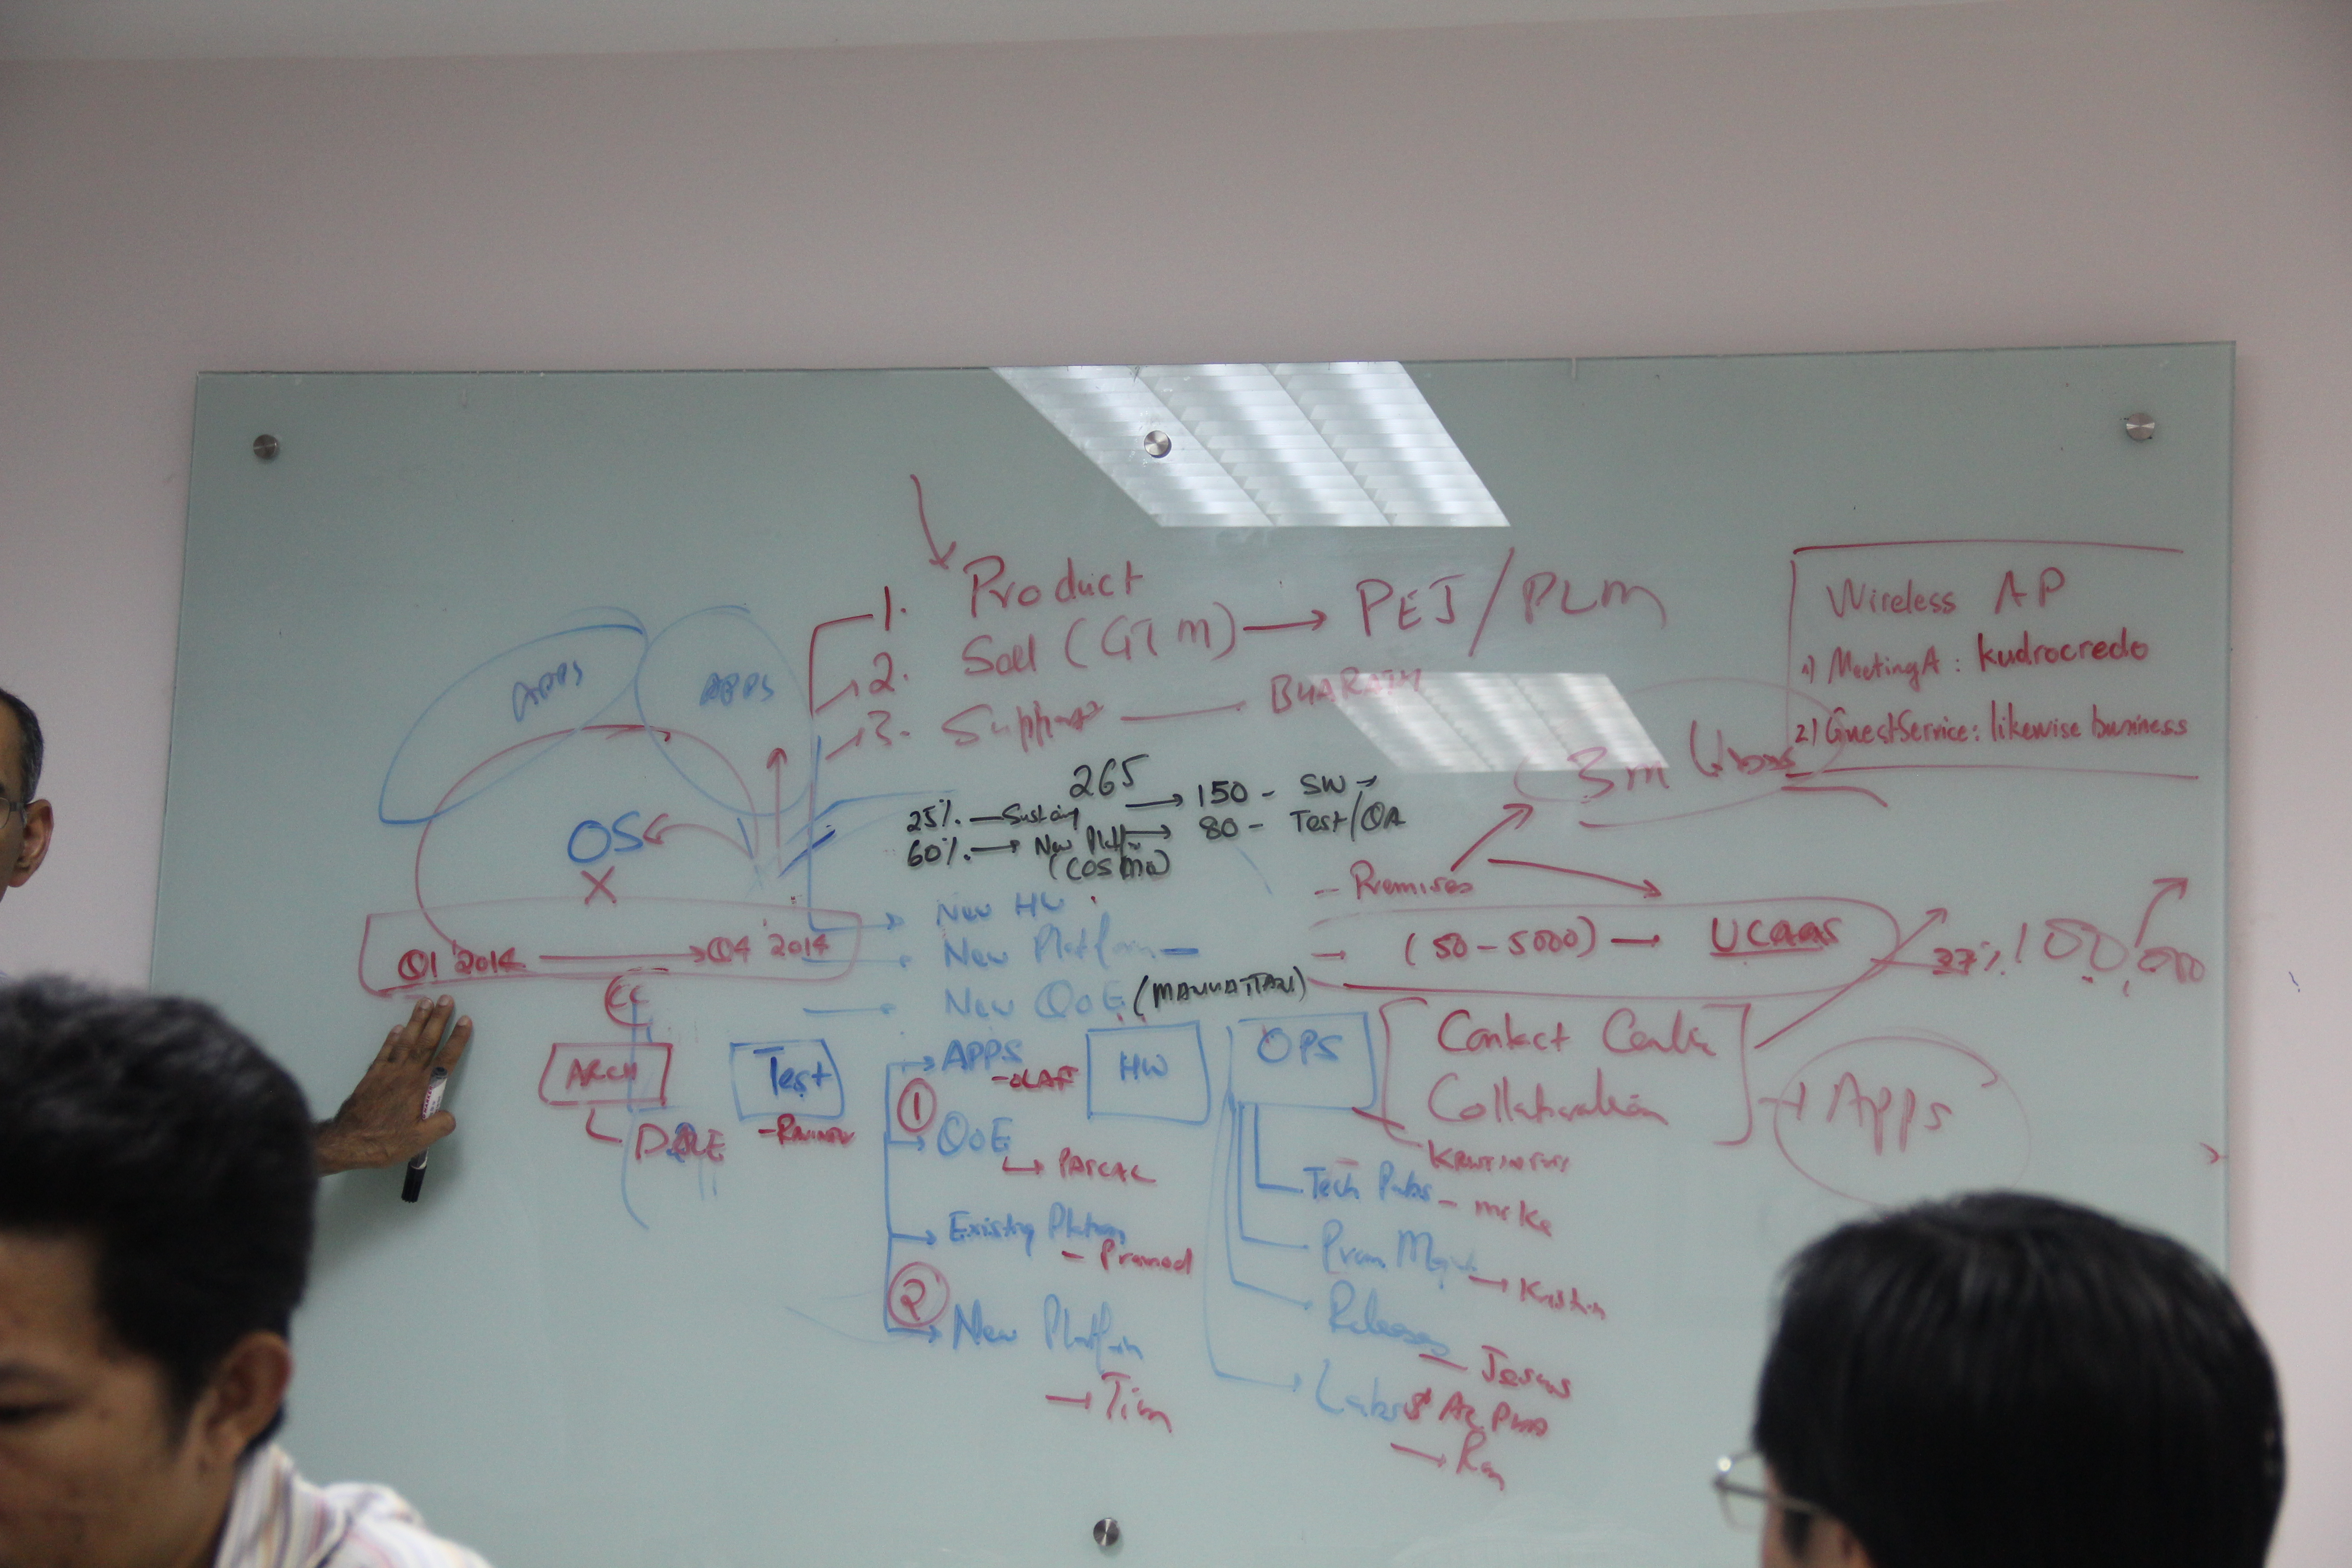 1. Product
2. Sell (GTM) → PEJ / PLM
3. Support — BHARATH
Wireless AP
1) MeetingA : kudrocredo
2) GuestService : likewise business
APPS
APPS
OS
X
265
→ 150 - SW →
25% — Sustaing
→ 80 - Test/QA
60% → New Platfm
(COSMO)
3m
- Premises
Q1 '2014 → Q4 '2014
New HW
New Platform -
New QoE (MANHATTAN)
→ (50 - 5000) → UCAAS
37%
100,000
CC
ARCH
Test
HW
OPS
Contact Center
Collaboration
→ Apps
APPS
- OLAF
1
QoE
↳ PASCAL
Existing Platform
- Pramod
2
New Platform
→ Tim
Tech Pubs - mike
Mgmt → Kristin
Releases
- Jesus
Labs &
→ Ron